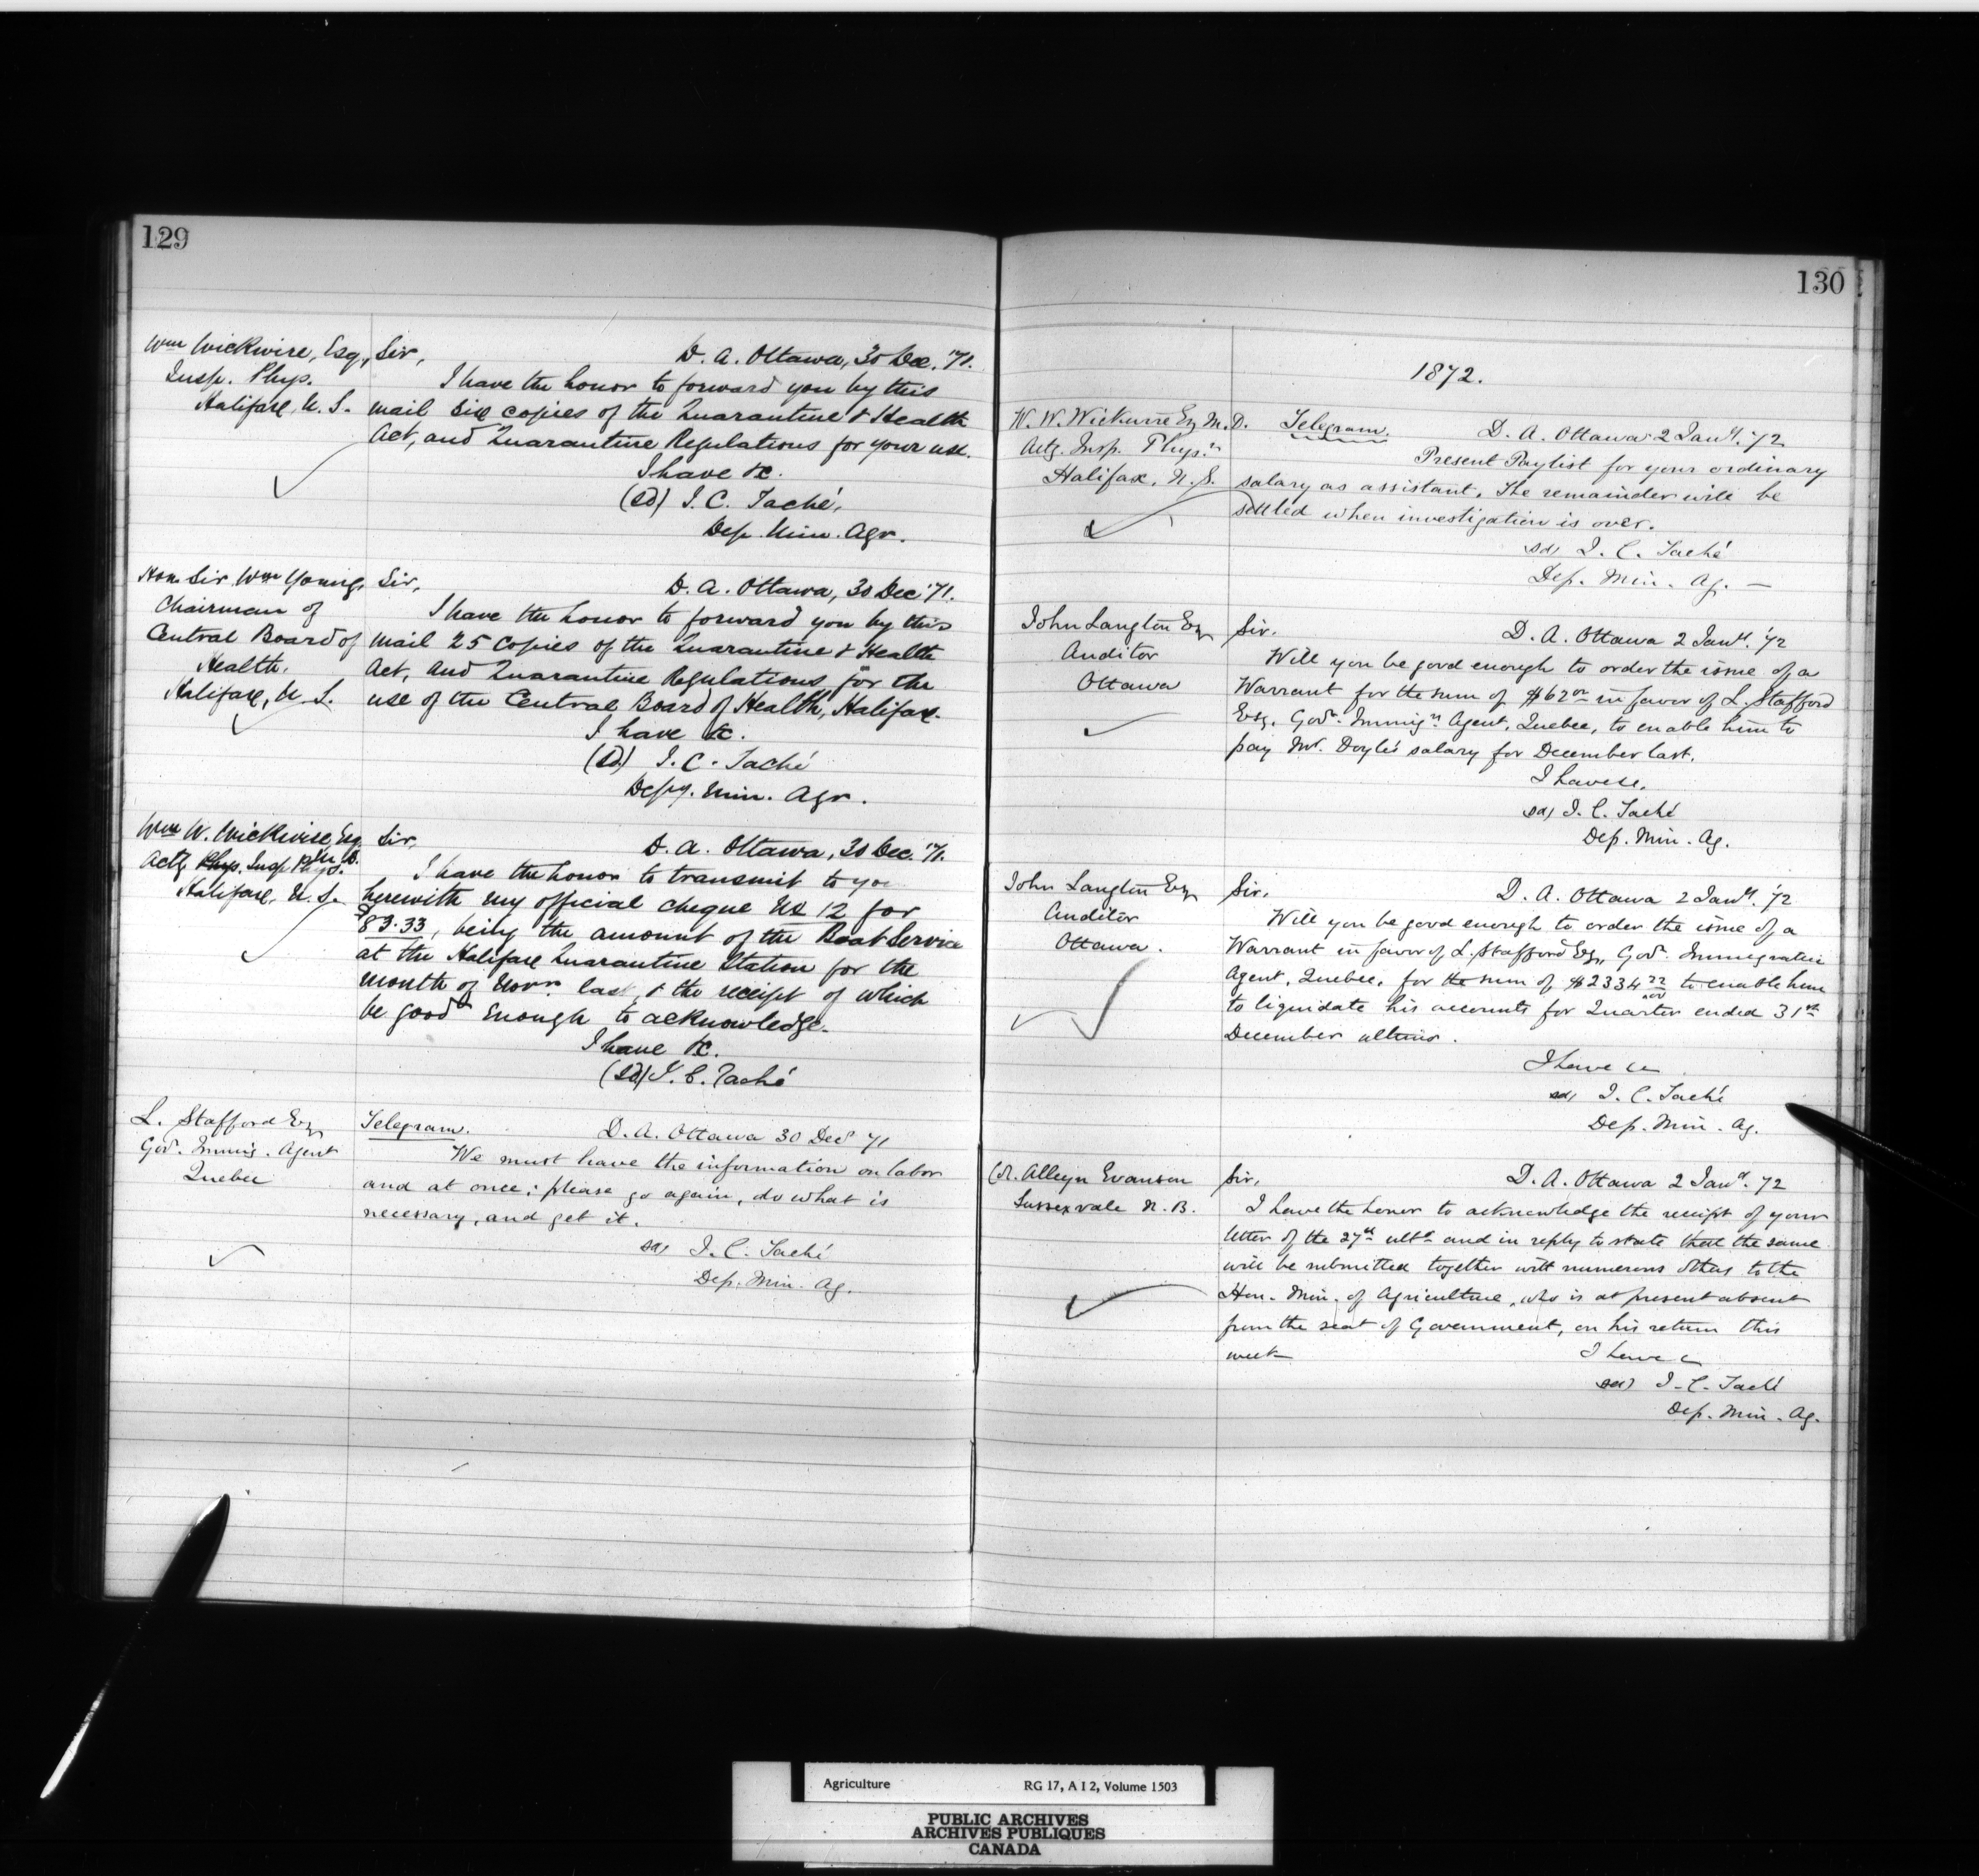 129
Wm Wickwire, Esq,
Insp. Phys.
Halifax, N. S.
Sir,
D. A. Ottawa, 30 Dec. '71.
I have the honor to forward you by this
mail six copies of the Quarantine & Health
Act, and Quarantine Regulations for your use.
I have &c.
(sd) J. C. Taché,
Dep. Min. Agr.
Hon. Sir Wm Young,
Chairman of
Central Board of
Health.
Halifax, N. S.
Sir,
D. A. Ottawa, 30 Dec '71.
I have the honor to forward you by this
mail 25 copies of the Quarantine & Health
Act, and Quarantine Regulations for the
use of the Central Board of Health, Halifax.
I have &c.
(sd) J. C. Taché
Depy. Min. Agr.
Wm W. Wickwire, Esq. M.D.
Actg Phys. Insp. Phys.
Halifax, N. S.
Sir,
D. A. Ottawa, 30 Dec. '71.
I have the honor to transmit to you
herewith my official cheque No 12 for
$83.33, being the amount of the Boat Service
at the Halifax Quarantine Station for the
month of Novr. last, & the receipt of which
be good enough to acknowledge.
I have &c.
(sd) J. C. Taché
L. Stafford Esq
Govt. Immig. Agent
Quebec
Telegram.
D. A. Ottawa 30 Decr 71
We must have the information on labor
and at once; please go again, do what is
necessary, and get it.
sd) J. C. Taché
Dep. Min. Ag.
130
1872.
W. W. Wickwire Esq M.D.
Actg. Insp. Physn
Halifax, N. S.
Telegram.
D. A. Ottawa 2 Jany. '72
Present Paylist for your ordinary
salary as assistant. The remainder will be
settled when investigation is over.
sd) J. C. Taché
Dep. Min. Ag. —
John Langton Esq
Auditor
Ottawa
Sir.
D. A. Ottawa 2 Jany. '72
Will you be good enough to order the issue of a
Warrant for the sum of $62 00 in favor of L. Stafford
Esq. Govt. Immign Agent, Quebec, to enable him to
pay Mr. Doyle's salary for December last.
I have &c.
sd) J. C. Taché
Dep. Min. Ag.
John Langton Esq
Auditor
Ottawa.
Sir.
D. A. Ottawa 2 Jany. '72
Will you be good enough to order the issue of a
Warrant in favor of L. Stafford Esq, Govt. Immigration
Agent, Quebec, for the sum of $2334 22/100 to enable him
to liquidate his accounts for Quarter ended 31st
December ultimo.
I have &c
sd) J. C. Taché
Dep. Min. Ag.
Alleyn Evanson
Sussexvale N. B.
Sir,
D. A. Ottawa 2 Jany. 72
I have the honor to acknowledge the receipt of your
letter of the 27th ulto and in reply to state that the same
will be submitted together with numerous others to the
Hon. Min. of Agriculture, who is at present absent
from the seat of Government, on his return this
week
I have &c
sd) J. C. Taché
Dep. Min. Ag.
Agriculture RG 17, A I 2, Volume 1503
PUBLIC ARCHIVES
ARCHIVES PUBLIQUES
CANADA